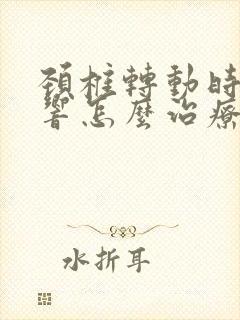 頚椎轉動時
響怎麼治療
水折耳